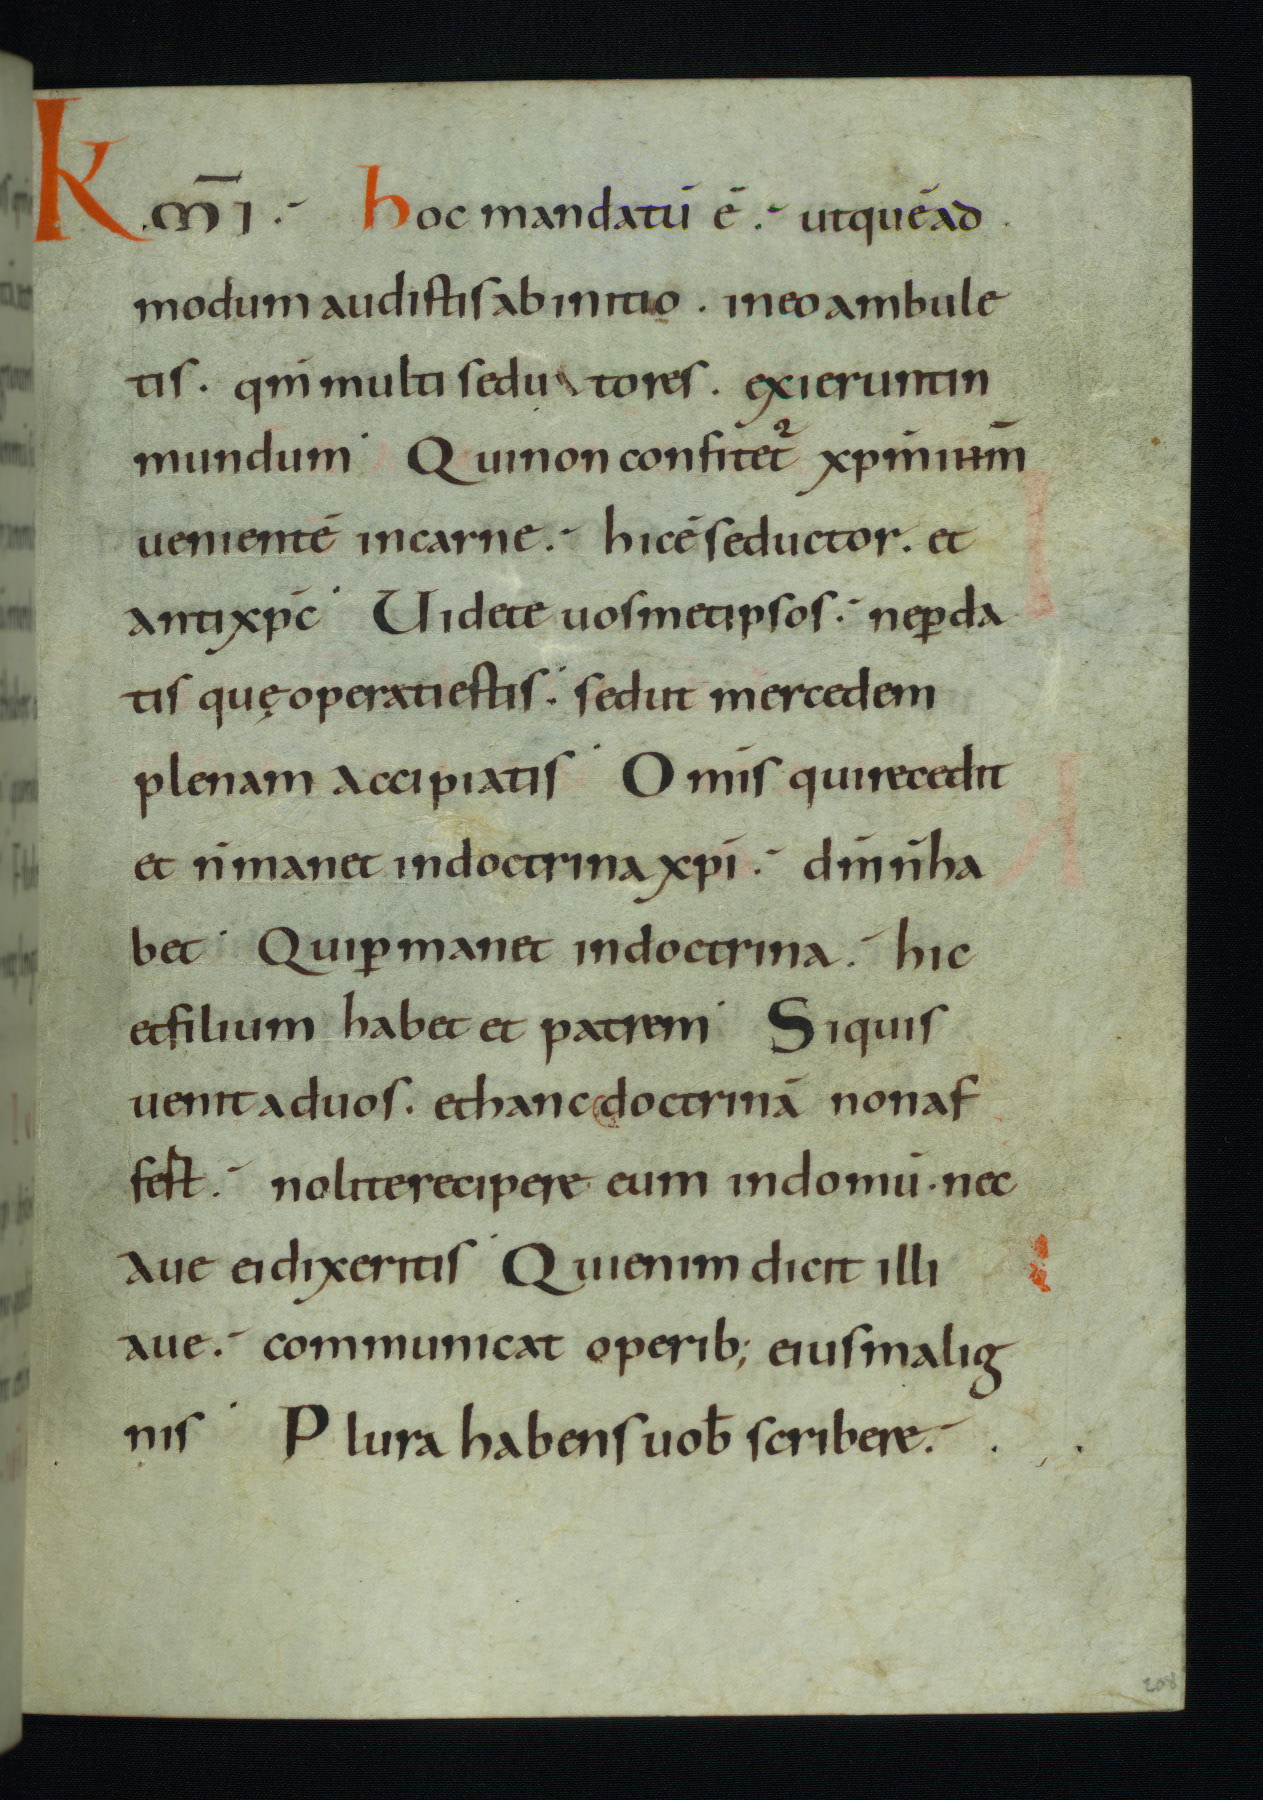 K mī .- hoc mandatū ē .- utquēad
modum audistis ab initio . in eo ambule
tis . qm̄ multi sedu tores . exierunt in
mundum Qui non confitet᷑ xpm̄ ihm̄
uenientē in carne .- hic ē seductor . et
antixpc̄ Uidete uosmetipsos .- ne ꝑda
tis quę operati estis . sed ut mercedem
plenam accipiatis Omīs qui recedit
et n̄ manet in doctrina xpī .- dm̄ n̄ ha
bet Qui ꝑmanet in doctrina .- hic
et filium habet et patrem Si quis
uenit ad uos . et hanc doctrinā non af
fest .- nolite recipere eum in domū . nec
aue ei dixeritis Qui enim dicit illi
aue .- communicat operib; eius malig
nis Plura habens uob̄ scribere .-
208